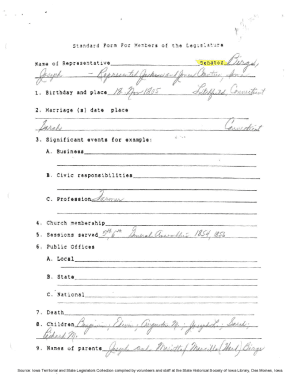 Standard Form For Members of the Legislature
Name of Representative Senator Birge,
Joseph - Represented Jackson and Jones Counties, Iowa
1. Birthday and place 18 Nov 1805 Litchfield, Connecticut
2. Marriage (s) date place
Sarah Connecticut
3. Significant events for example:
A. Business
B. Civic responsibilities
C. Profession Farmer
4. Church membership
5. Sessions served 5th, 6th General Assemblies 1854, 1856
6. Public Offices
A. Local
B. State
C. National
7. Death
8. Children Benjamin; Edwin; Augustus M.; Joseph L.; Sarah;
Richard M.
9. Names of parents Joseph and Mariette/Manville (Hurd) Birge
Source: Iowa Territorial and State Legislators Collection compiled by volunteers and staff at the State Historical Society of Iowa Library, Des Moines, Iowa.